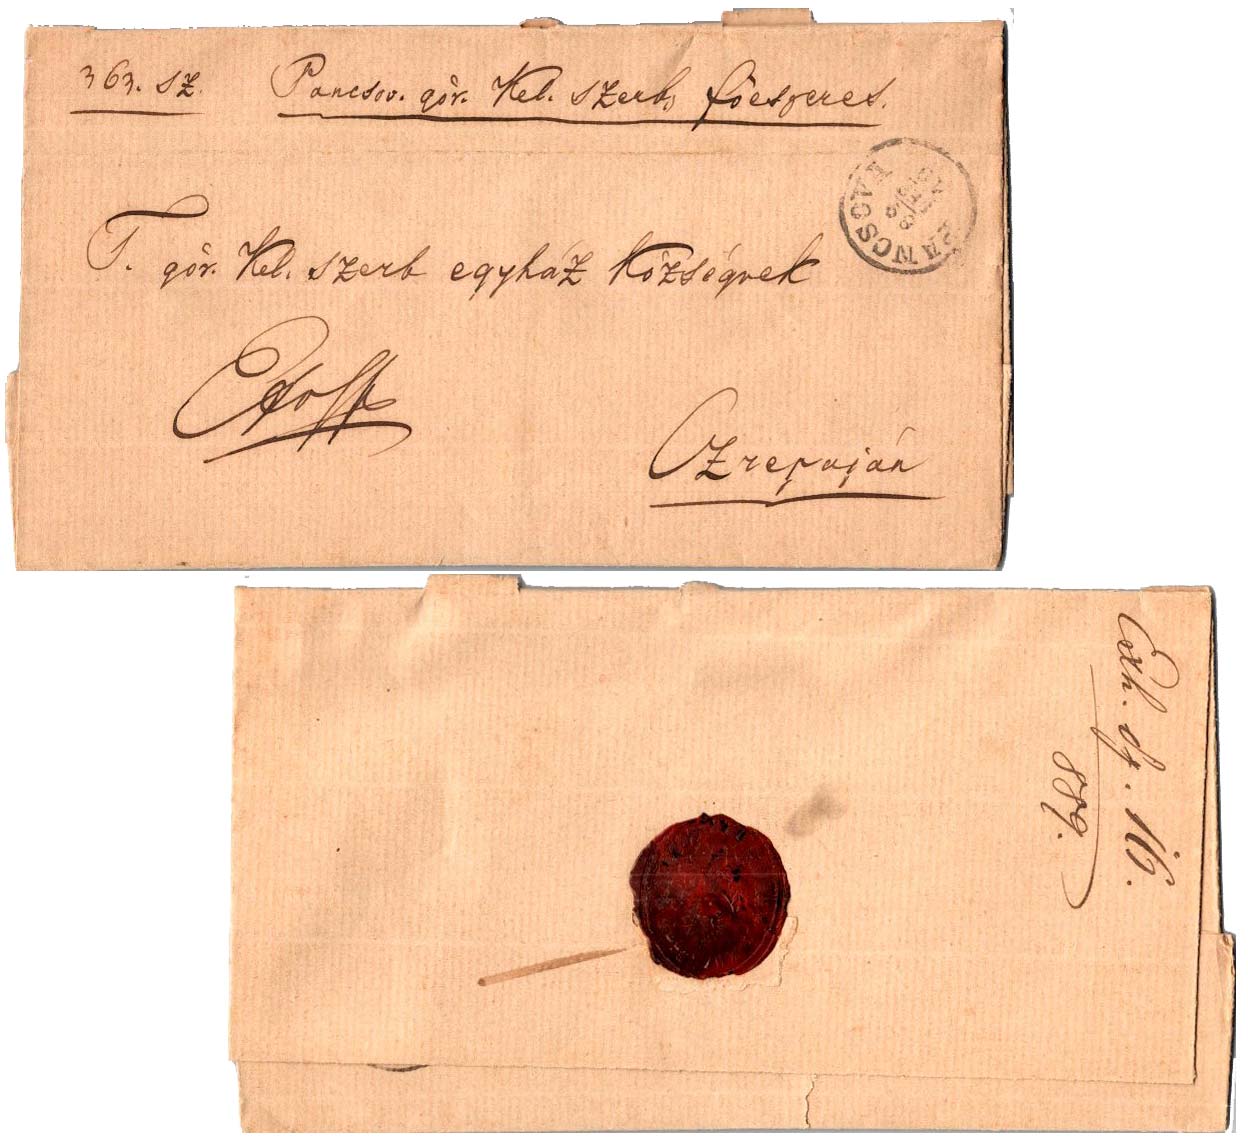 363. sz. Pancsov. gör. Kel. szerb. főesperes.
PANCSOVA
T. gör. Kel. szerb egyház Községnek
Czrepaján
Exh. d. 1/6.
889.